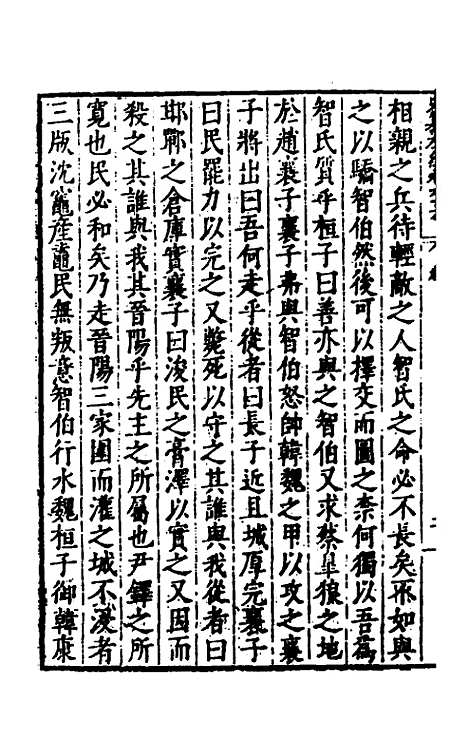 相親之兵待輕敵之人智氏之命必不長矣不如與
之以驕智伯然後可以擇交而圖之柰何獨以吾為
智氏質乎桓子曰善亦與之智伯又求蔡臯狼之地
於趙襄子襄子弗與智伯怒帥韓魏之甲以攻之襄
子將出曰吾何走乎從者曰長子近且城厚完襄子
曰民罷力以完之又斃死以守之其誰與我從者曰
邯鄲之倉庫實襄子曰浚民之膏澤以實之又因而
殺之其誰與我其晉陽乎先主之所屬也尹鐸之所
寬也民必和矣乃走晉陽三家圍而灌之城不浸者
三版沈竈産鼃民無叛意智伯行水魏桓子御韓康